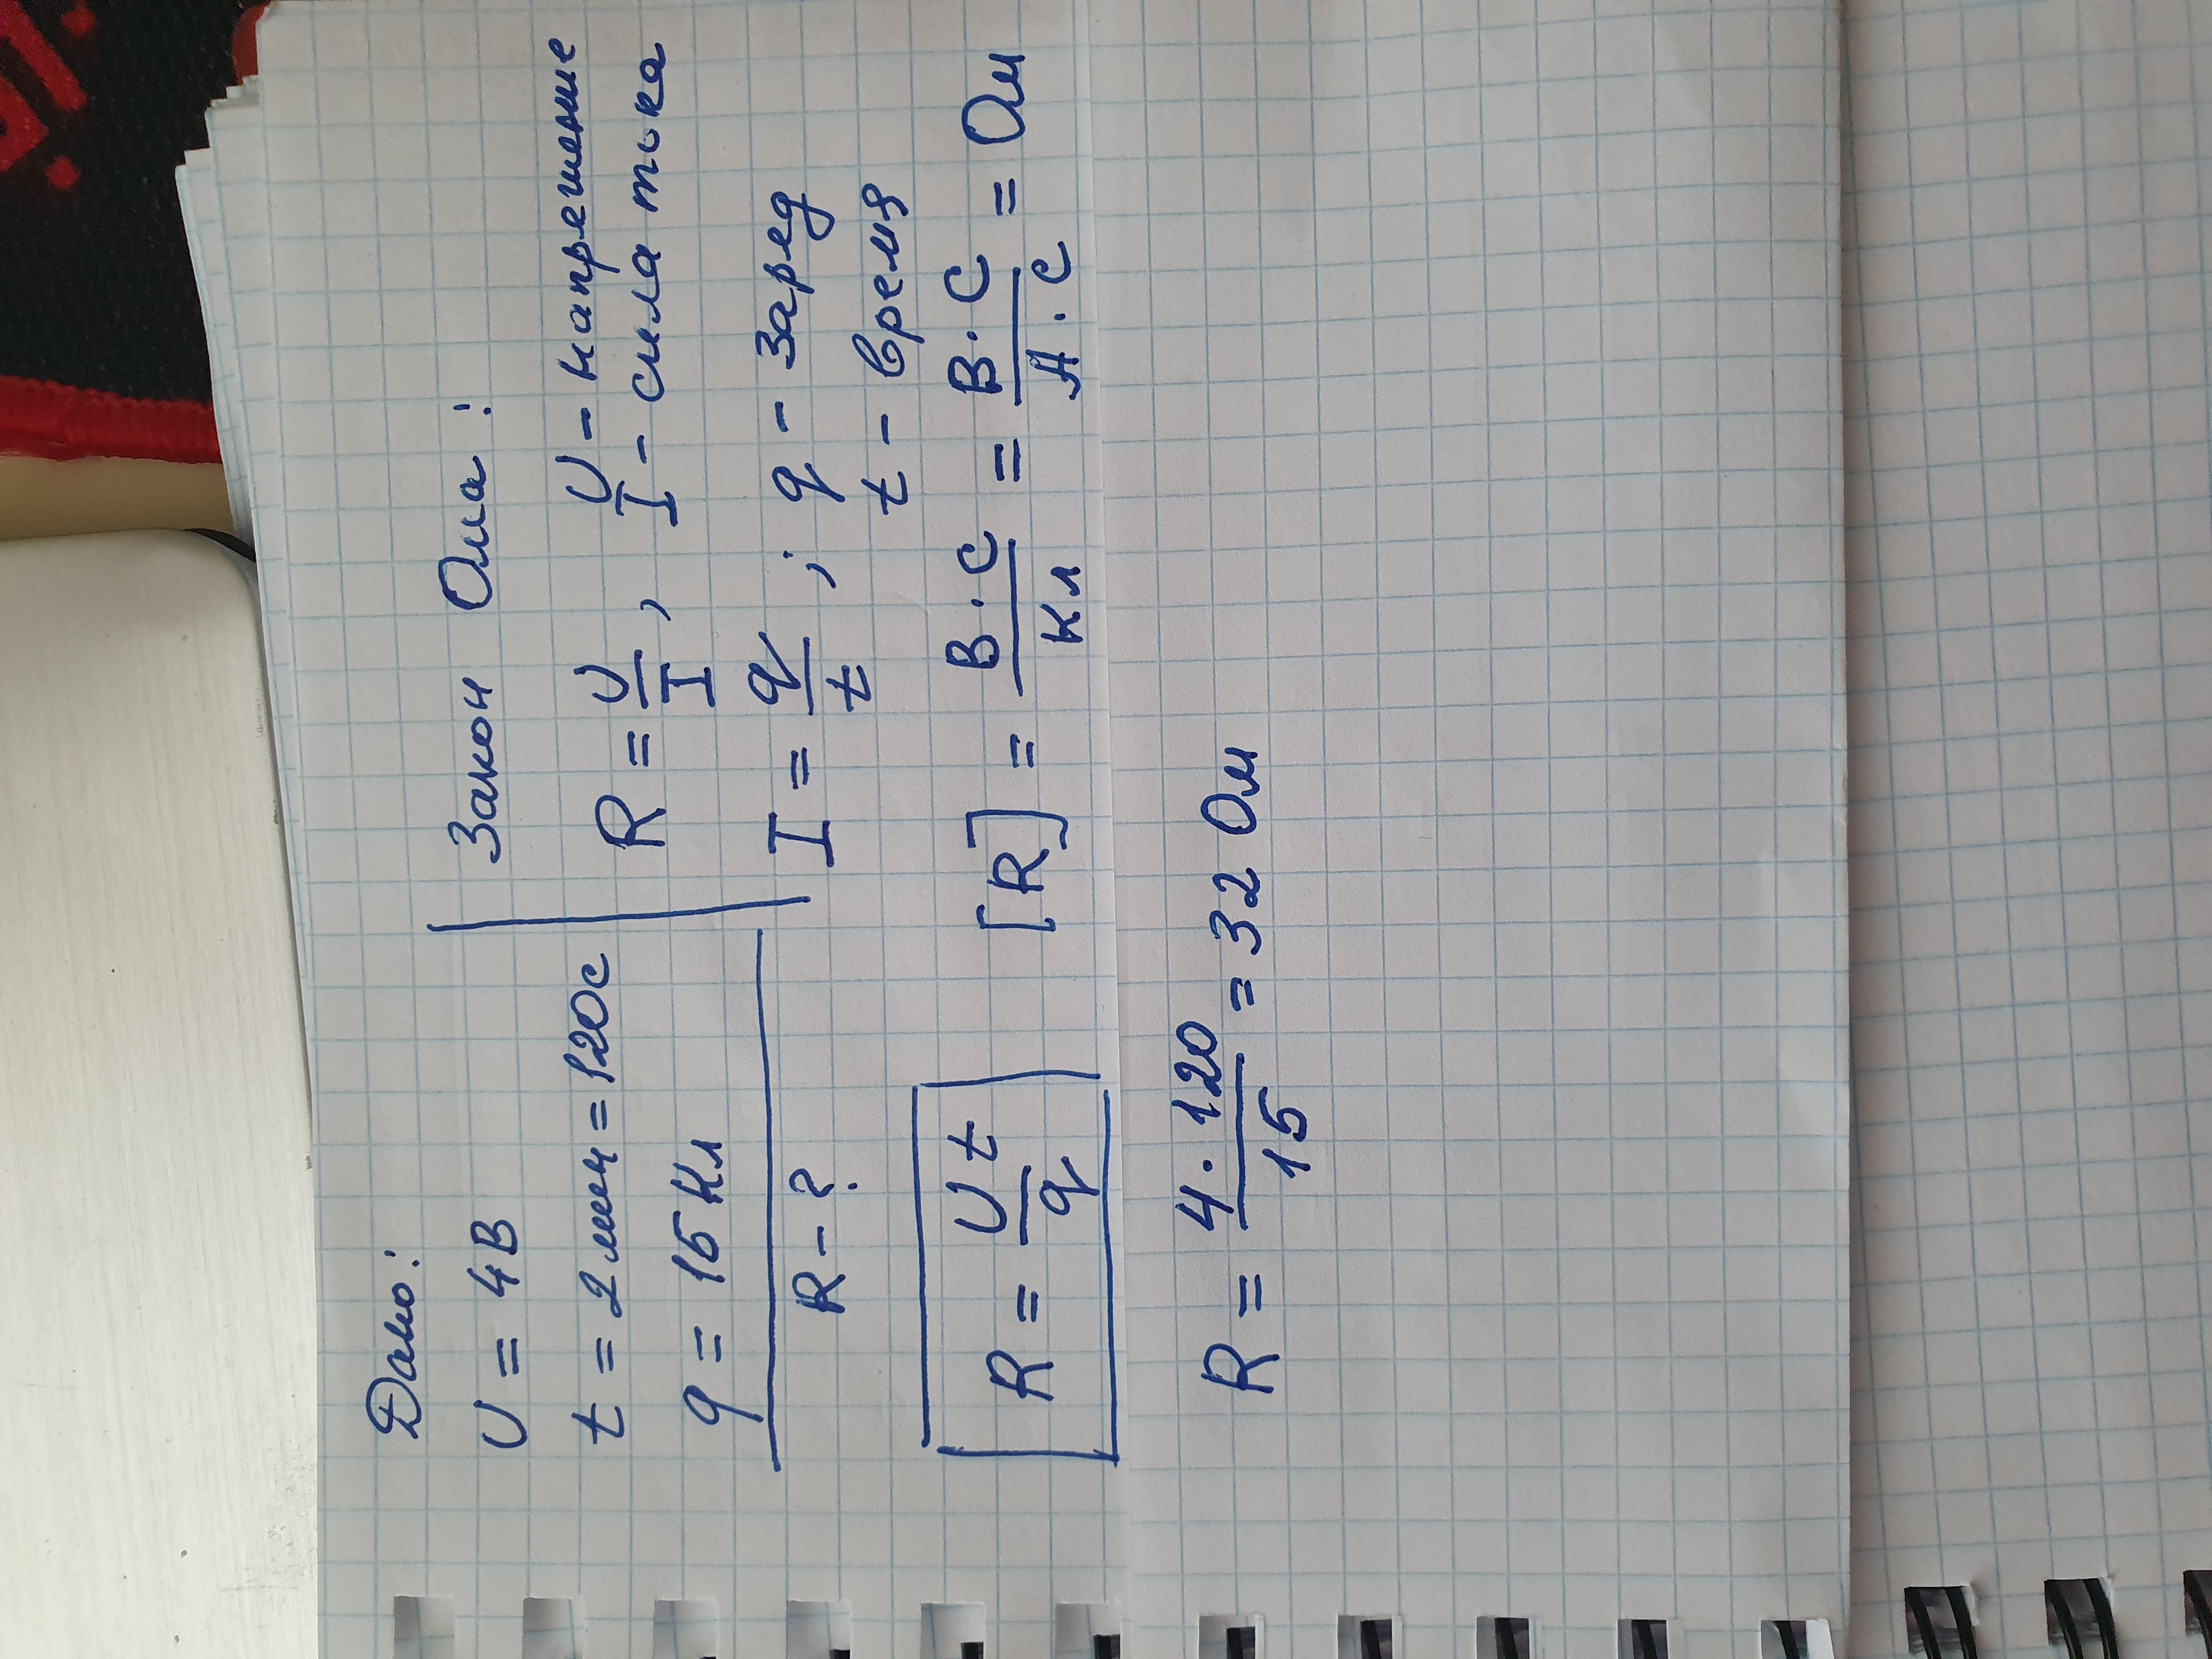 Дано:
U = 4В
t = 2мин = 120с
q = 15 Кл
R - ?
Закон Ома:
R = U/I, U - напрежение
I - сила тока
I = q/t; q - заред
t - время
R = Ut/q
[R] = В·с/Кл = В·с/А·с = Ом
R = 4·120/15 = 32 Ом